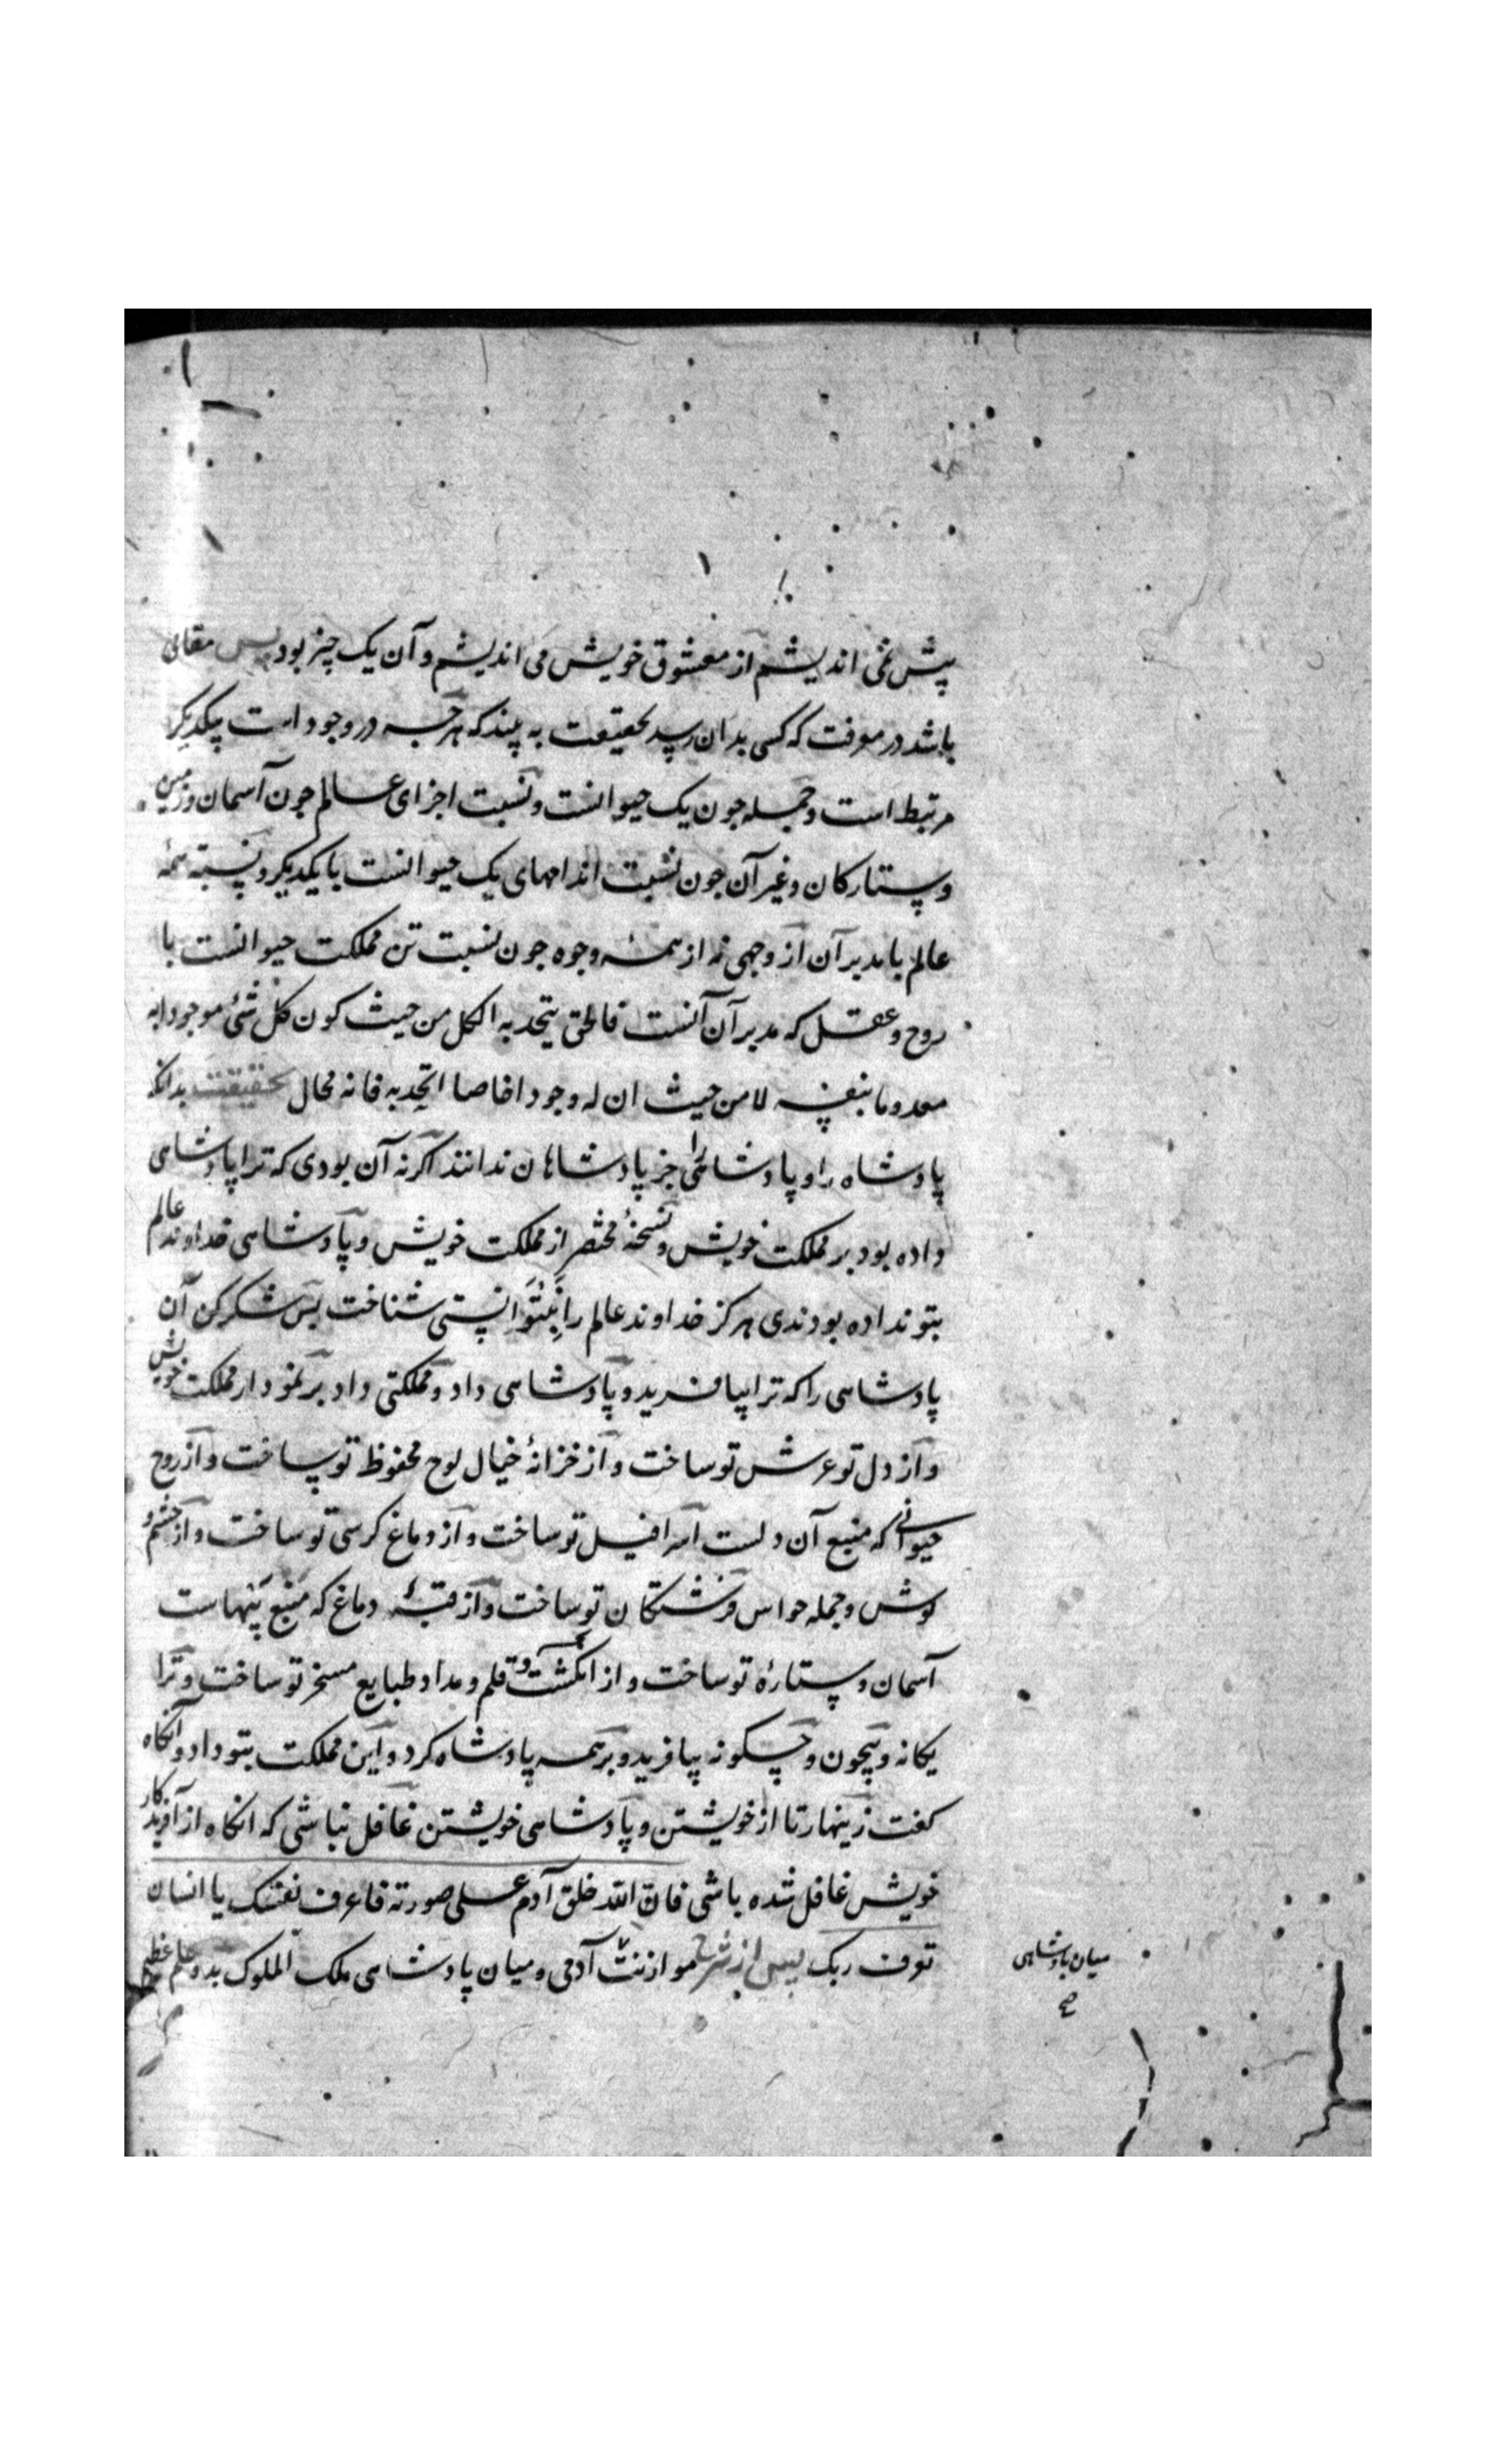 پیش نمی اندیشم از معشوق خویش می اندیشم و آن یک چیز بود پس مقامی
باشد در معرفت که کسی بدان رسد بحقیقت به بیند که هرچه در وجود است بیکدیکر
مرتبط است و جمله چون یک حیوانست و نسبت اجزای عالم چون آسمان و زمین
و ستارکان و غیر آن چون نسبت اندامهای یک حیوانست با یکدیکر و نسبت همۀ
عالم با مدبر آن از وجهی نه از همۀ وجوه چون نسبت تن مملکت حیوانست با
روح و عقل که مدبر آن آنست فالحق یتحد به الکل من حیث کون کل شئ موجودا به
معدوما بنفسه لا من حیث ان له وجودا خاصا اتحد به فانه محال حقیقت بدانکه
پادشاه را و پادشاهی را جز پادشاهان ندانند اکر نه آن بودی که ترا پادشاهی
داده بود بر مملکت خویش و نسخۀ مختصر از مملکت خویش و پادشاهی خداوند عالم
بتو نداده بودندی هرکز خداوند عالم را نتوانستی شناخت پس شکر کن آن
پادشاهی را که ترا بیافرید و پادشاهی داد و مملکتی داد بر نمودار مملکت خویش
و از دل تو عرش تو ساخت و از خزانۀ خیال لوح محفوظ تو ساخت و از روح
حیوانی که منبع آن دلست اسرافیل تو ساخت و از دماغ کرسی تو ساخت و از چشم و
کوش و جمله حواس فرشتکان تو ساخت و از قبۀ دماغ که منبع پنهاست
آسمان و ستارۀ تو ساخت و از انکشت و قلم و مداد طبایع مسخر تو ساخت و ترا
یکانه و بیچون و چکونه بیافرید و بر همه پادشاه کرد و این مملکت بتو داد و آنکاه
کفت زینهار تا از خویشتن و پادشاهی خویشتن غافل نباشی که انکاه از آفریدکار
خویش غافل شده باشی فان الله خلق آدم علی صورته فاعرف نفسک یا انسان
تعرف ربک پس از شرح موازنت آدمی و میان پادشاهی ملک الملوک بدو علم عظیم
میان پادشاهی
صح